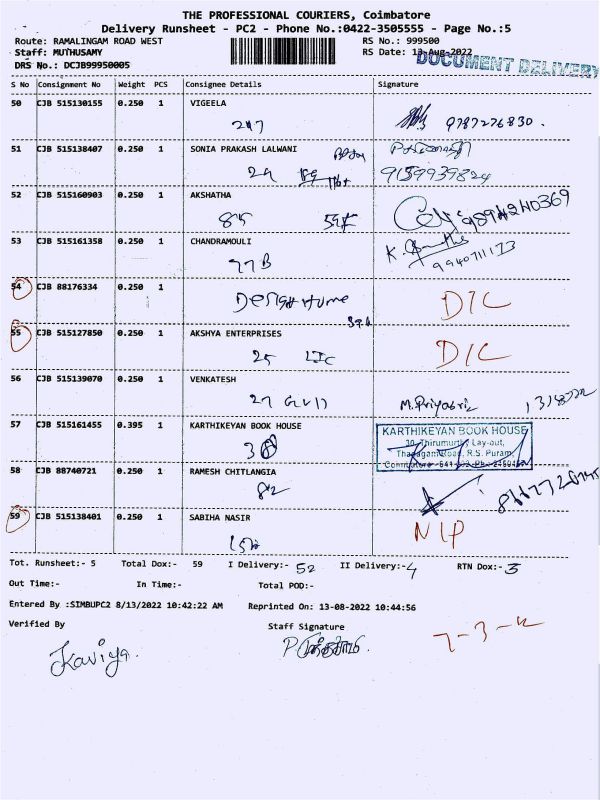 THE PROFESSIONAL COURIERS, Coimbatore
Delivery Runsheet - PC2 - Phone No.:0422-3505555 - Page No.:5
Route: RAMALINGAM ROAD WEST RS No.: 999500
Staff: MUTHUSAMY RS Date: 13-Aug-2022
DOCUMENT DELIVERY
DRS No.: DCJB99950005
S No Consignment No Weight PCS Consignee Details Signature
50 CJB 515130155 0.250 1 VIGEELA
247 9787276830.
51 CJB 515138407 0.250 1 SONIA PRAKASH LALWANI
29 9159939824
52 CJB 515160903 0.250 1 AKSHATHA
53 CJB 515161358 0.250 1 CHANDRAMOULI
77B 9940711173
54 CJB 88176334 0.250 1
Design Home D/C
55 CJB 515127850 0.250 1 AKSHYA ENTERPRISES
25 LIC D/C
56 CJB 515139070 0.250 1 VENKATESH
27 M.Priyasri
57 CJB 515161455 0.395 1 KARTHIKEYAN BOOK HOUSE
KARTHIKEYAN BOOK HOUSE
30, Thirumurthy Lay-out,
Thadagam Road, R.S. Puram,
58 CJB 88740721 0.250 1 RAMESH CHITLANGIA
82
59 CJB 515138401 0.250 1 SABIHA NASIR
N/P
Tot. Runsheet:- 5 Total Dox:- 59 I Delivery:- 52 II Delivery:- 4 RTN Dox:- 3
Out Time:- In Time:- Total POD:-
Entered By :SIMBUPC2 8/13/2022 10:42:22 AM Reprinted On: 13-08-2022 10:44:56
Verified By Staff Signature
Kaviya.